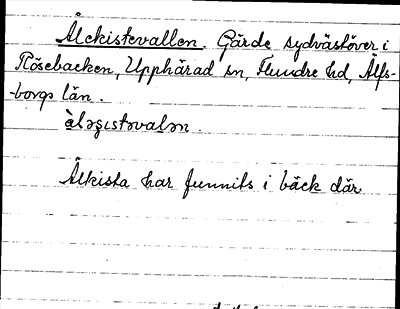 Ålekistevallen. Gärde sydvästöver i
Rösebacken, Upphärad sn, Flundre hd, Älfs-
borgs län.
Ålkista har funnits i bäck där